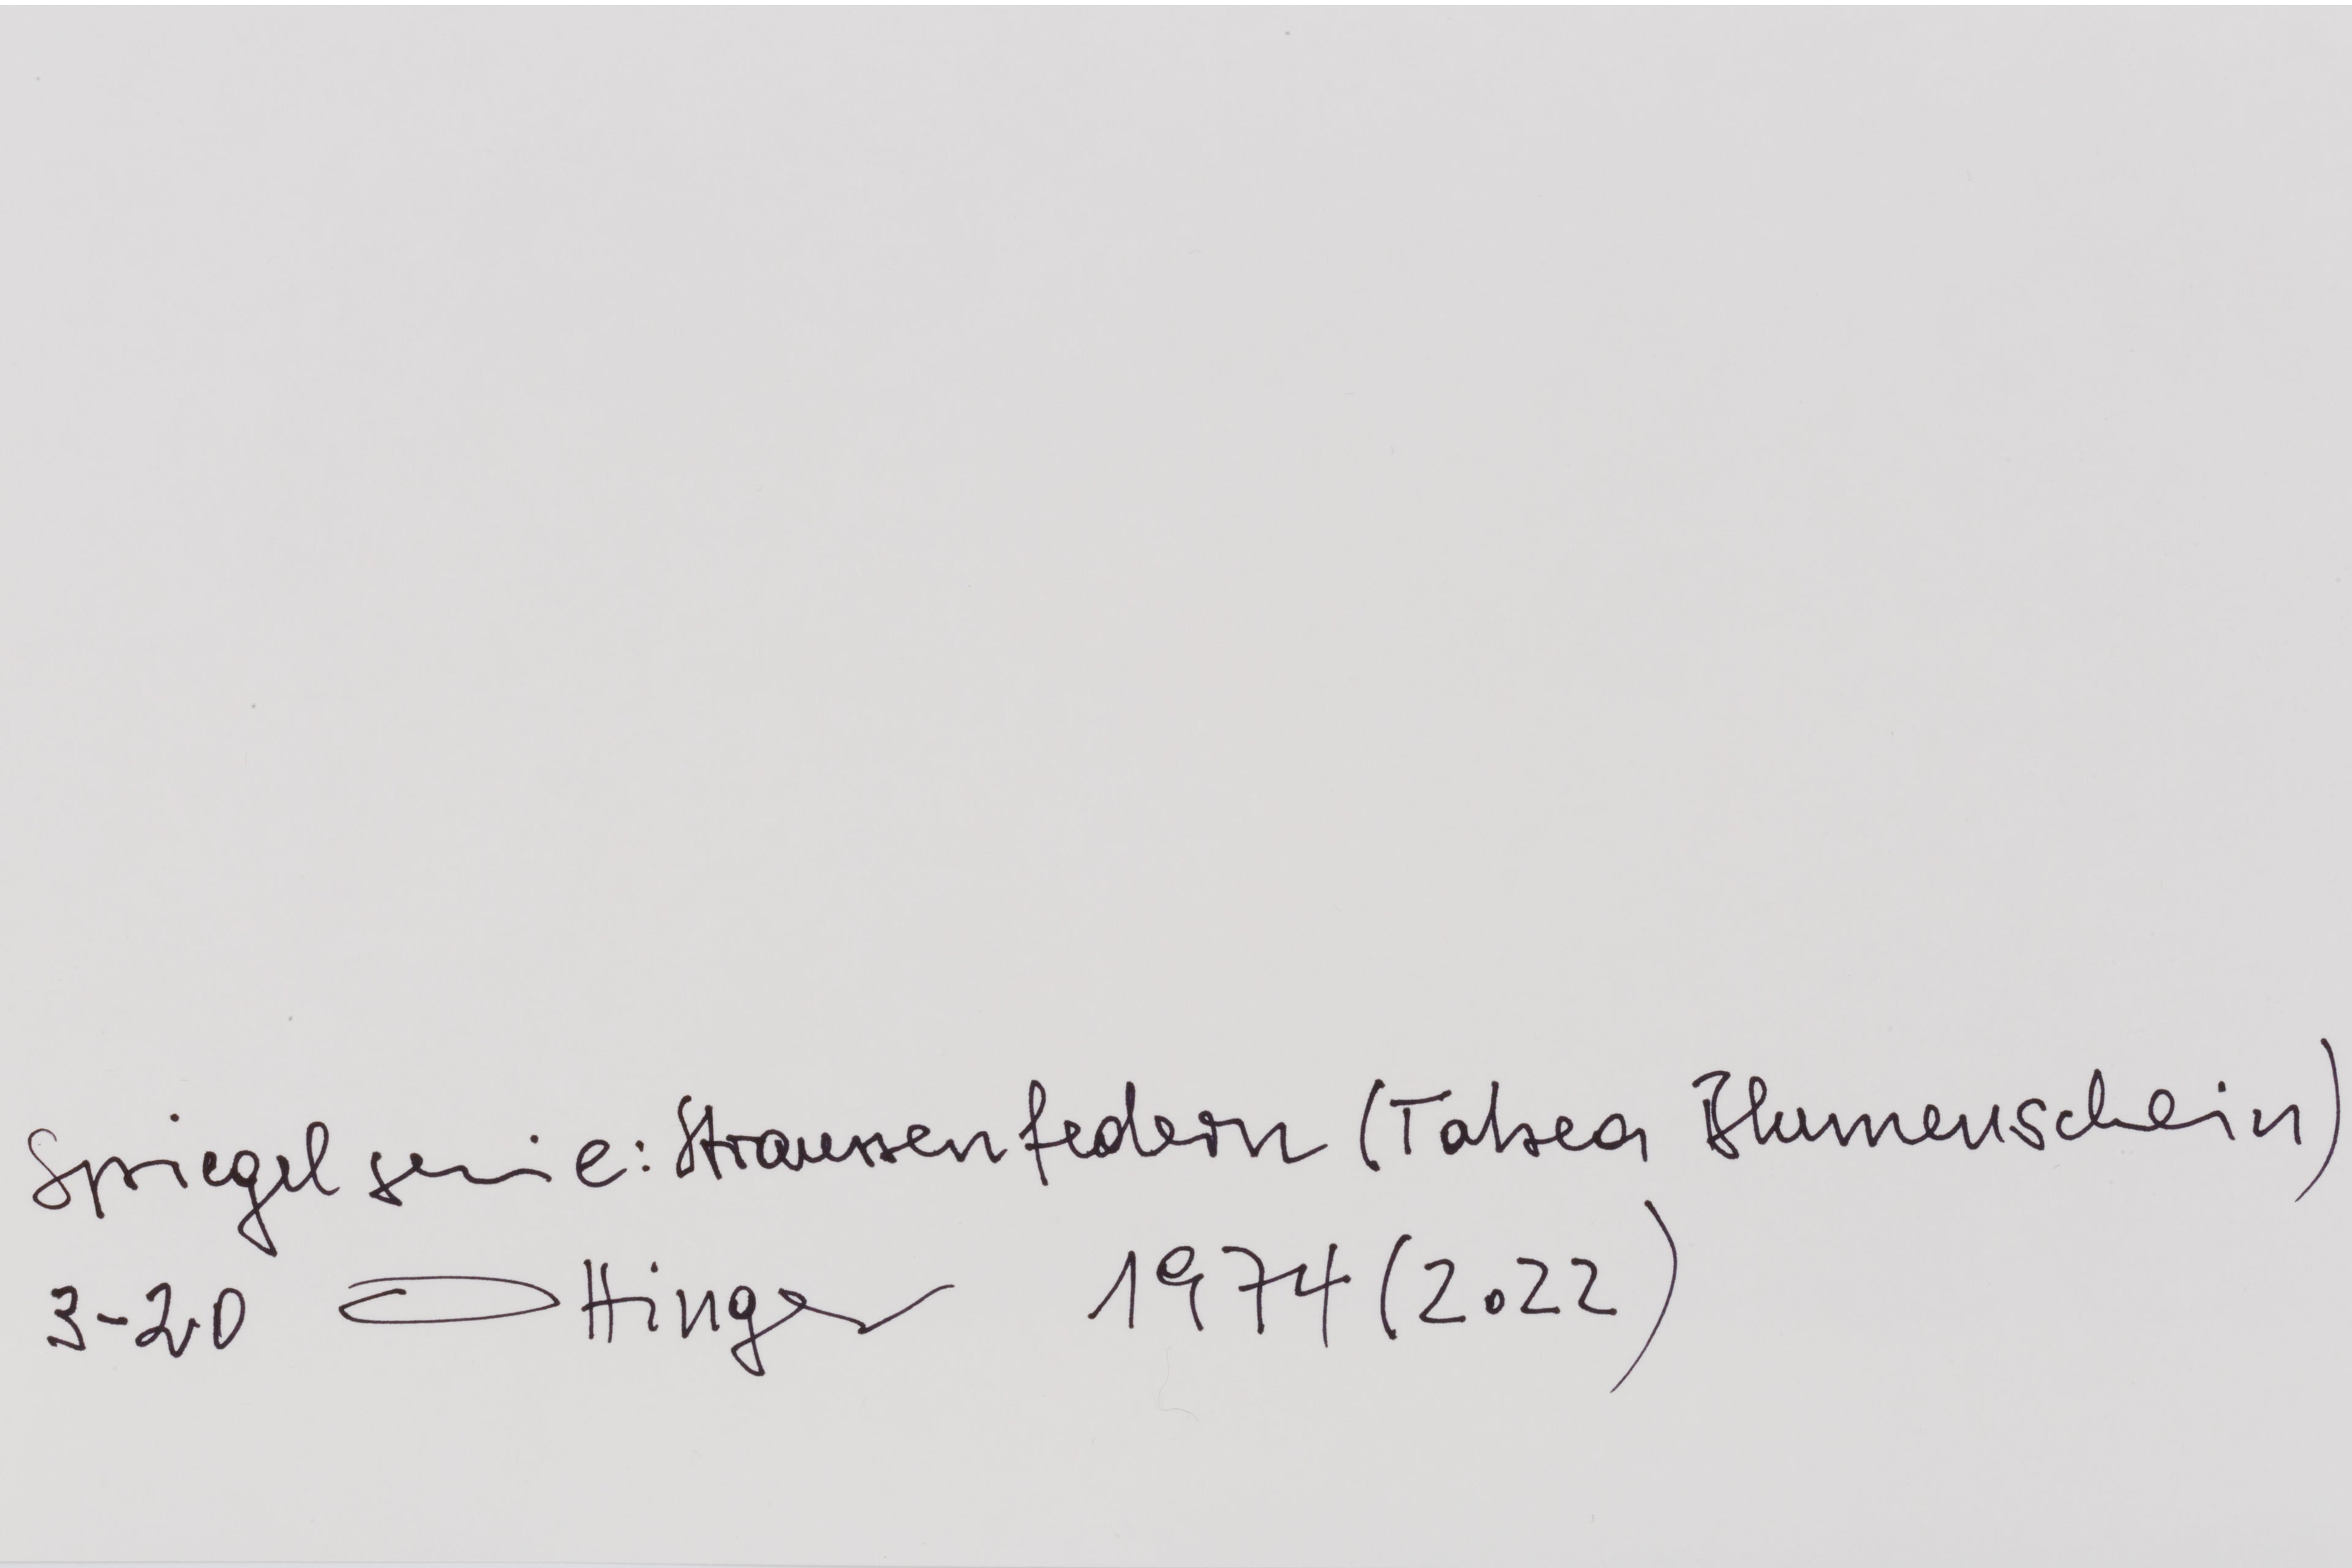 Spiegelserie: Straussenfedern (Tabea Blumenschein)
3-20 Ottinger 1974 (2.22)